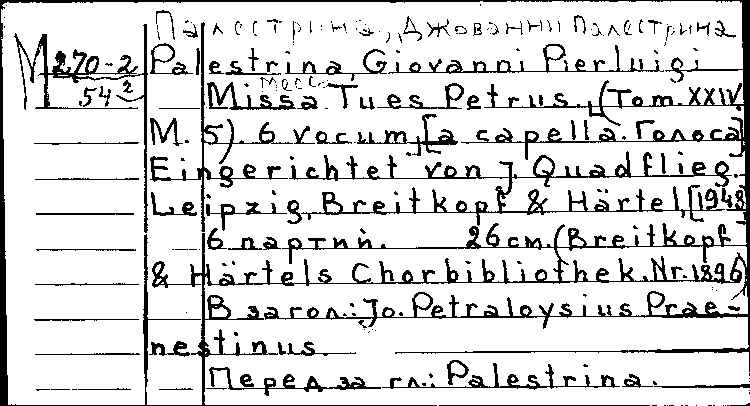 Палестрина, Джованни Палестрина
М 270-2 Palestrina, Giovanni Pierluigi
54² Месса
Missa Tues Petrus., (Tom. XXIV.
M. 5). 6 vocum, [a capella. Голоса]
Eingerichtet von J. Quadflieg.
Leipzig, Breitkopf & Härtel, [1948]
6 партий. 26 см. (Breitkopf
& Härtels Chorbibliothek. Nr. 1896)
В загол.: Jo. Petraloysius Prae-
nestinus.
Перед загл.: Palestrina.